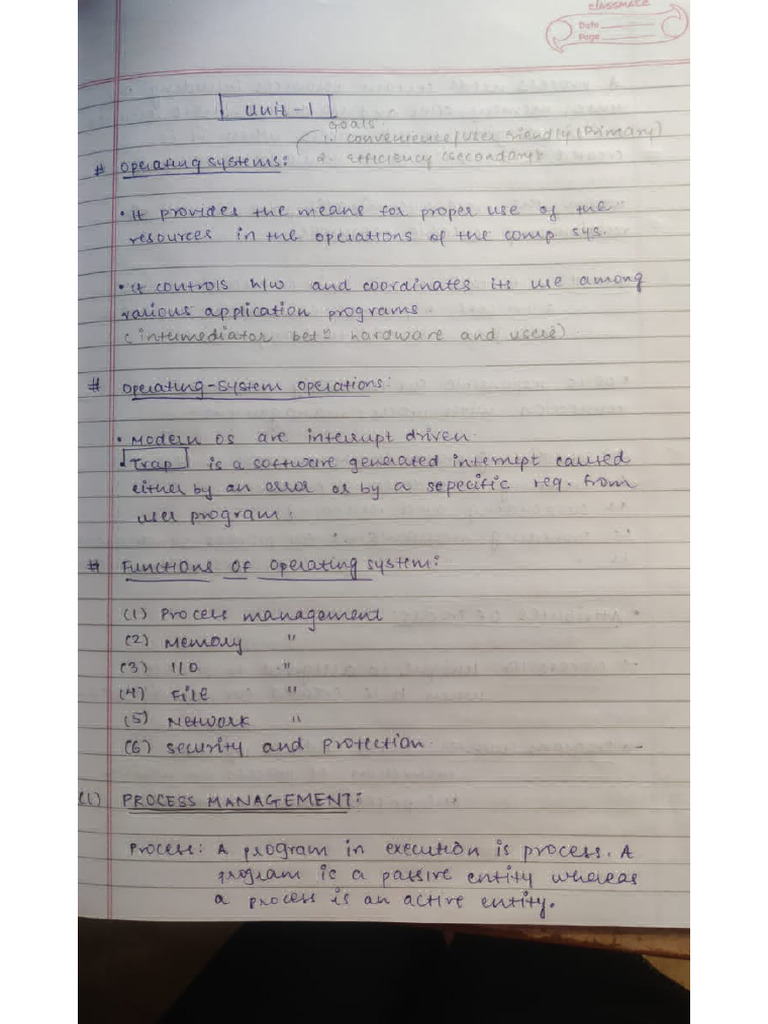 classmate
Date
Page
Unit-1
Goals
1. convenience/user friendly (Primary)
2. efficiency (secondary)
# Operating systems:
• it provides the means for proper use of the
resources in the operations of the comp sys.
• it controls h/w and coordinates its use among
various application programs.
(intermediator betn hardware and users)
# Operating-system operations:
• Modern OS are interrupt driven.
• Trap is a software generated interrupt caused
either by an error or by a sepecific req. from
user program.
# Functions of operating system:
(1) Process management
(2) Memory "
(3) I/O "
(4) File "
(5) Network "
(6) security and protection.
(1) PROCESS MANAGEMENT:
Process: A program in execution is process. A
program is a passive entity whereas
a process is an active entity.